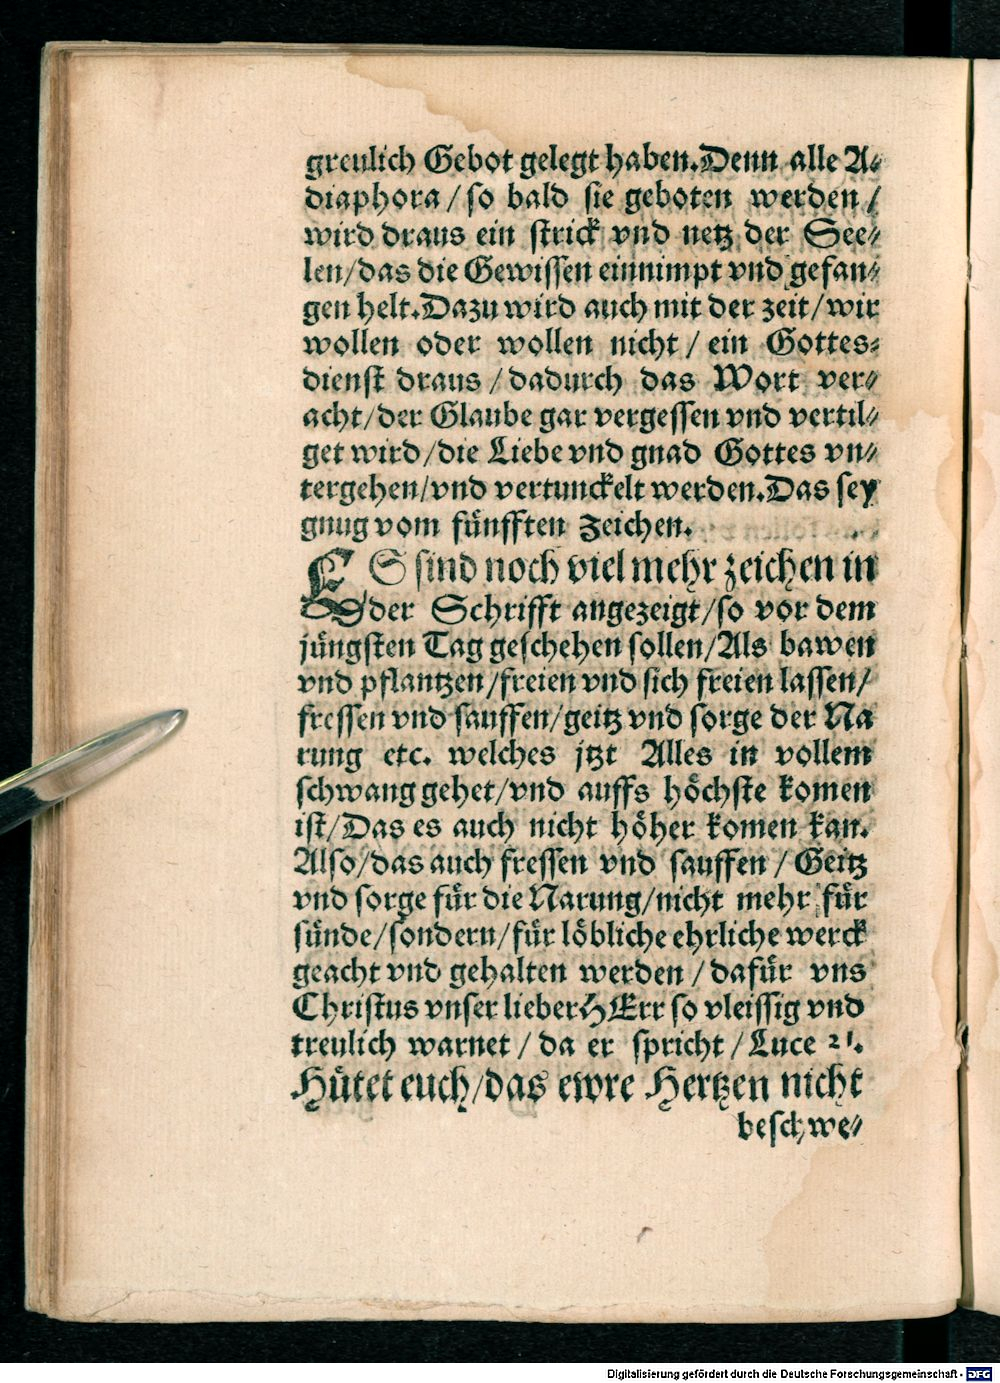 greulich Gebot gelegt haben. Denn alle A⸗
diaphora / so bald sie geboten werden /
wird draus ein strick vnd netz der See⸗
len / das die Gewissen einnimpt vnd gefan⸗
gen helt. Dazu wird auch mit der zeit / wir
wollen oder wollen nicht / ein Gottes⸗
dienst draus / dadurch das Wort ver⸗
acht / der Glaube gar vergessen vnd vertil⸗
get wird / die Liebe vnd gnad Gottes vn⸗
tergehen / vnd vertunckelt werden. Das sey
gnug vom fünfften Zeichen.
ES sind noch viel mehr zeichen in
der Schrifft angezeigt / so vor dem
jüngsten Tag geschehen sollen / Als bawen
vnd pflantzen / freien vnd sich freien lassen /
fressen vnd sauffen / geitz vnd sorge der Na
rung etc. welches jtzt Alles in vollem
schwang gehet / vnd auffs höchste komen
ist / Das es auch nicht höher komen kan.
Also / das auch fressen vnd sauffen / Geitz
vnd sorge für die Narung / nicht mehr für
sünde / sondern / für löbliche ehrliche werck
geacht vnd gehalten werden / dafür vns
Christus vnser lieber HErr so vleissig vnd
treulich warnet / da er spricht / Luce 21.
Hütet euch / das ewre Hertzen nicht
beschwe⸗
Digitalisierung gefördert durch die Deutsche Forschungsgemeinschaft - DFG